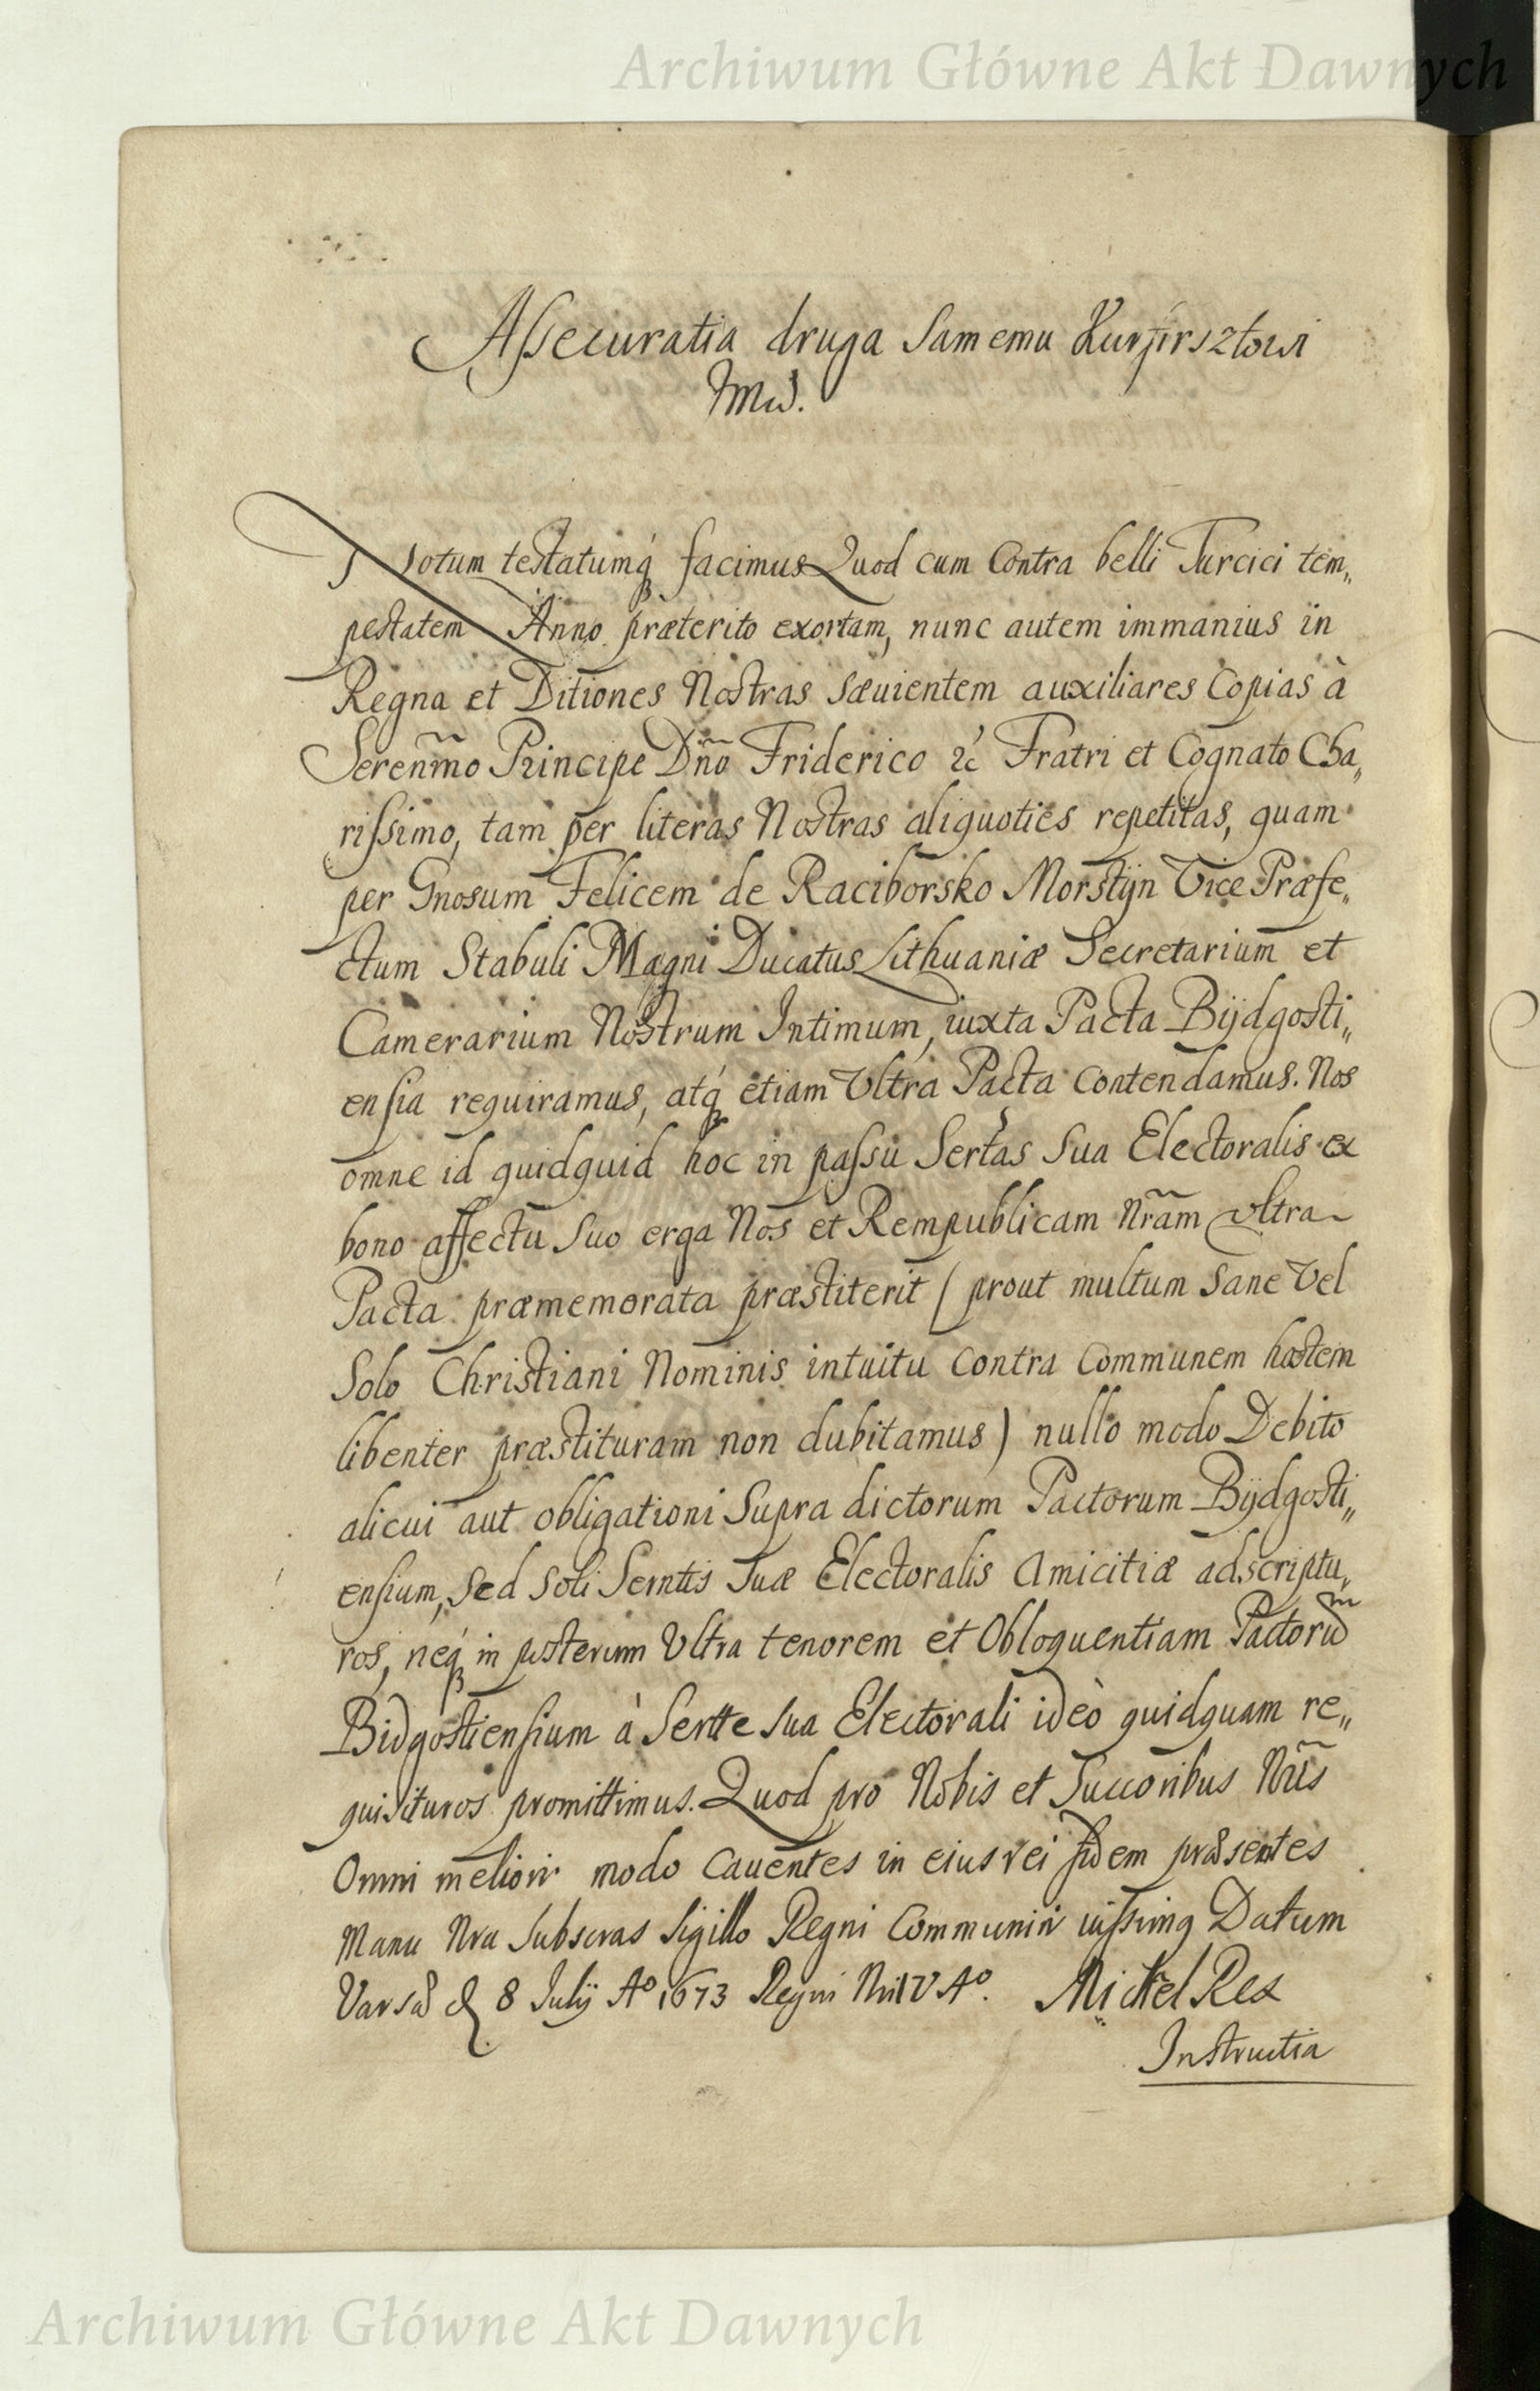 Archiwum Główne Akt Dawnych
Assecuratia druga samemu Kurfirsztowi
Notum testatumq́ facimus Quod cum Contra belli Turcici tem„
pestatem Anno præterito exortam, nunc autem immanius in
Regna et Ditiones Nostras sæuientem auxiliares Copias à
Serenm̃o Principe Dño Friderico &c Fratri et Cognato Cha„
rissimo, tam per literas Nostras aliquoties repetitas, quam
per Gnosum Felicem de Raciborsko Morstijn Vice Præfe„
ctum Stabuli Magni Ducatus Lithuaniæ Secretarium et
Camerarium Nostrum Intimum, iuxta Pacta Bijdgosti„
ensia requiramus, atq́ etiam Vltra Pacta Contendamus. Nos
omne id quidquid hoc in passu Sertas Sua Electoralis ex
bono affectu suo erga Nos et Rempublicam Nr̃am vltra
Pacta præmemorata præstiterit ( prout multum sane Vel
Solo Christiani Nominis intuitu Contra Communem hostem
libenter præstituram non dubitamus ) nullo modo Debito
alicui aut obligationi Supra dictorum Pactorum Bijdgosti„
ensium, sed soli Serntis Suæ Electoralis Amicitiæ adscriptu„
ros, neq́ in posterum Vltra tenorem et Obloquentiam Pactorũm
Bidgostiensium à Sertte sua Electorali ideò quidquam re„
quisituros promittimus. Quod pro Nobis et Succoribus Nr̃is
Omni meliori modo Cauentes in eius rei fidem præsentes
Manu Nra Subscras Sigillo Regni Communiri iussimq Datum
Varsæ d 8 Julij Aº 1673 Regni Nri V Aº. Michel Rex
Instructia
Archiwum Główne Akt Dawnych